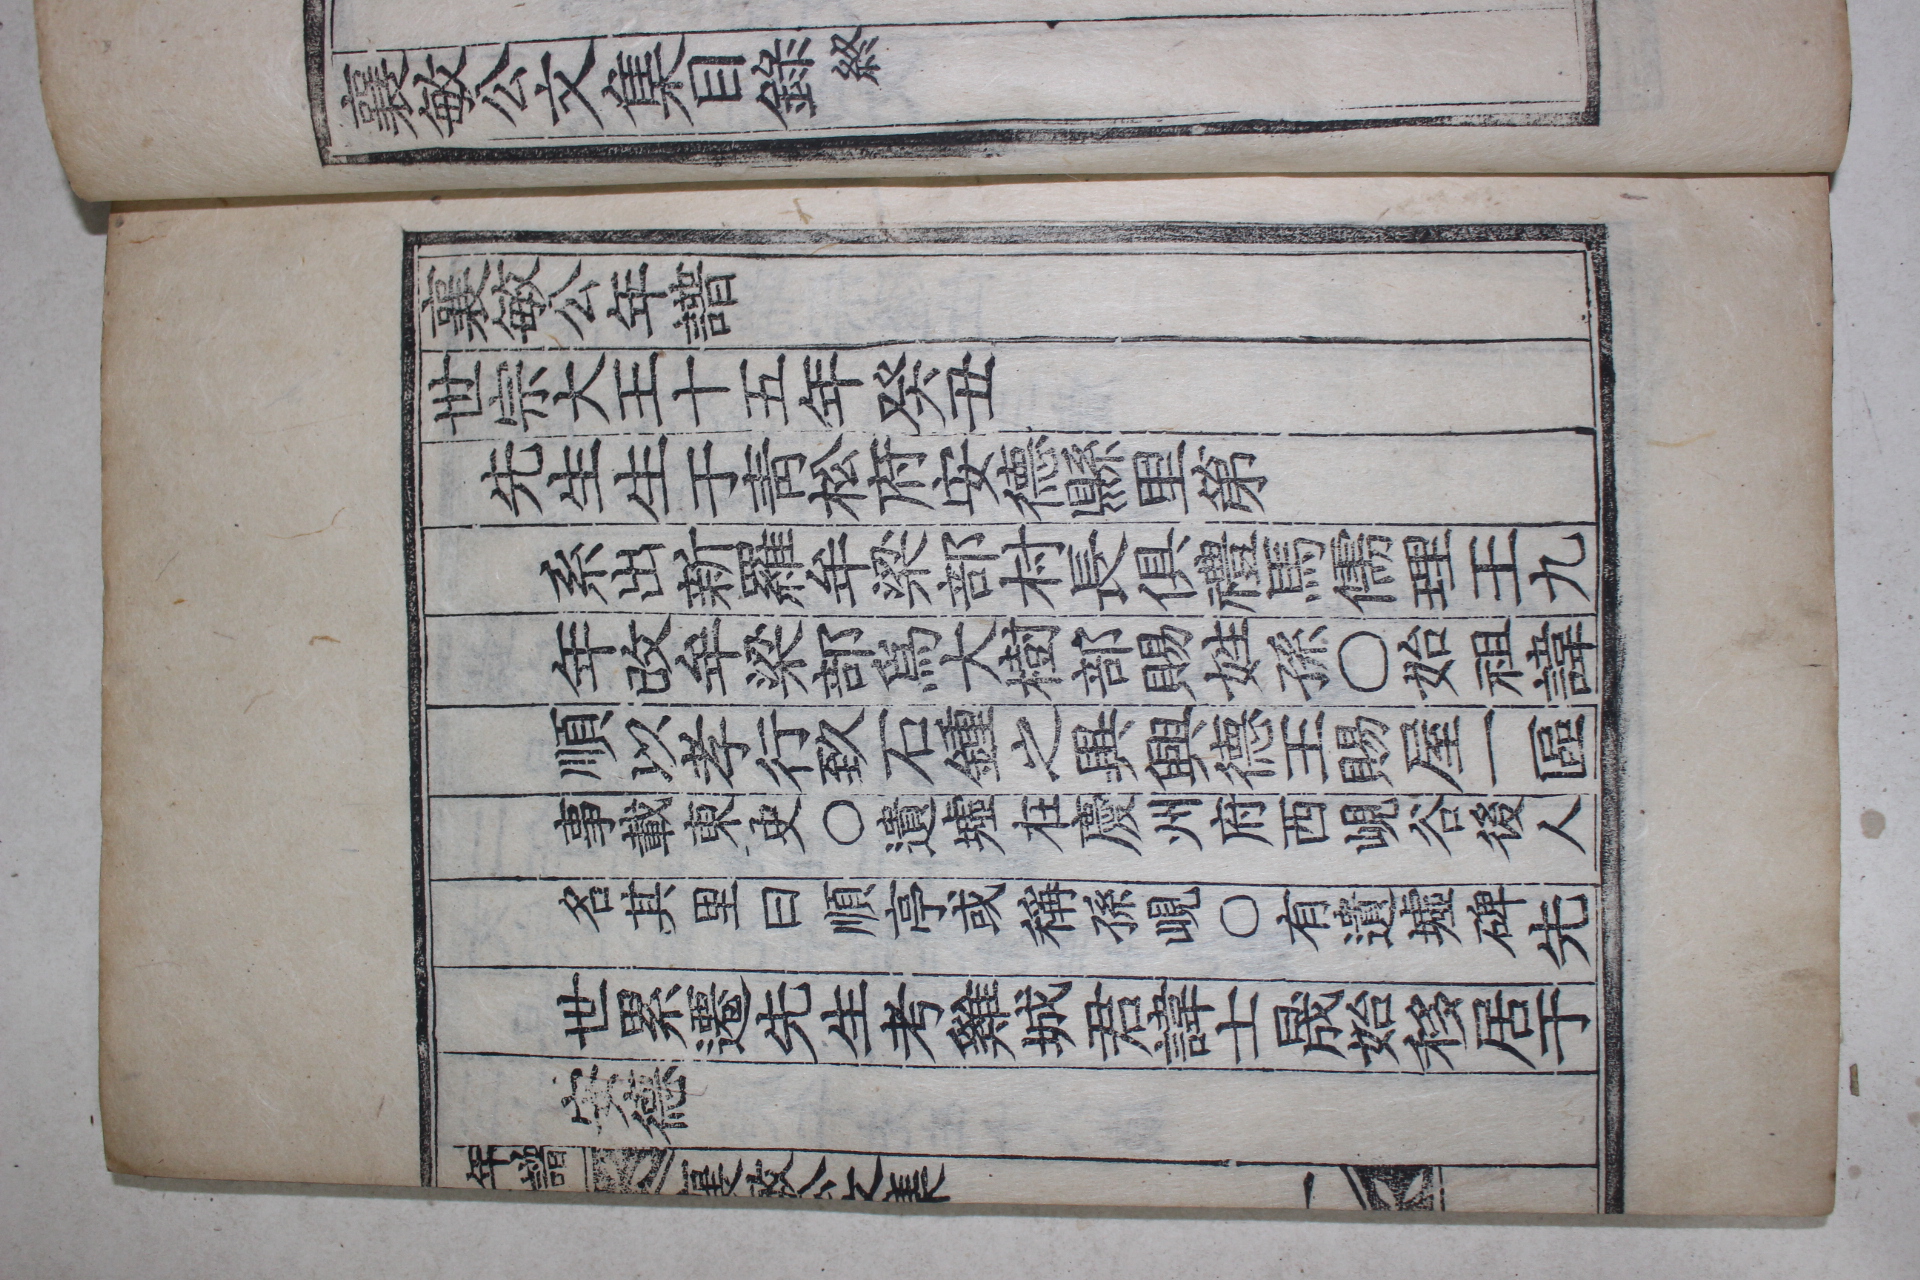 襄敏公文集目錄終
襄敏公年譜
世宗大王十五年癸丑
先生生于青松府安德縣里第
系出新羅牟梁部村長俱禮馬儒理王九
年改牟梁部爲大樹部賜姓孫○始祖諱
順以孝行致石鍾之異興德王賜屋一區
事載東史○遺墟在慶州府西峴谷後人
名其里曰順亭或稱孫峴○有遺墟碑先
世累遷先生考雞城君諱士晟始移居于
安德
年譜
襄敏公文集
一